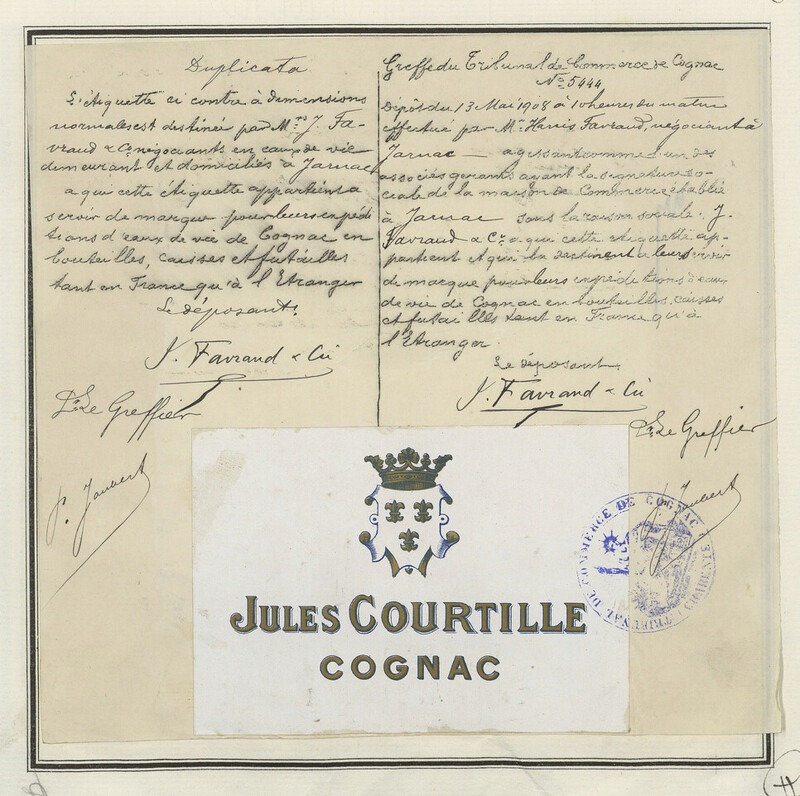 Duplicata
L'étiquette ci contre à dimensions
normales est destinée par Mrs J. Fa-
vraud & Ce négociants en eaux de vie
demeurant et domiciliés à Jarnac
a qui cette étiquette appartient a
servir de marque pour leurs expédi
tions d'eaux de vie de Cognac en
bouteilles, caisses et futailles
tant en France qu'à l'Etranger
Le déposant,
J. Favraud & Cie
Le Greffier
P. Joubert
Greffe du Tribunal de Commerce de Cognac
No 5444
Dépôt du 13 Mai 1908 à 10 heures du matin
effectué par Mr Favraud, négociant à
Jarnac — agissant comme l'un des
associés gerants ayant la signature so-
ciale de la maison de Commerce établie
à Jarnac sous la raison sociale: J.
Favraud & Ce a qui cette étiquette ap-
partient et qui la destinent a leur servir
de marque pour leurs expéditions d'eaux
de vie de Cognac en bouteilles, caisses
et futailles tant en France qu'à
l'Etranger.
Le déposant,
J. Favraud & Cie
Le Greffier
P. Joubert
TRIBUNAL DE COMMERCE DE COGNAC (CHARENTE)
JULES COURTILLE
COGNAC